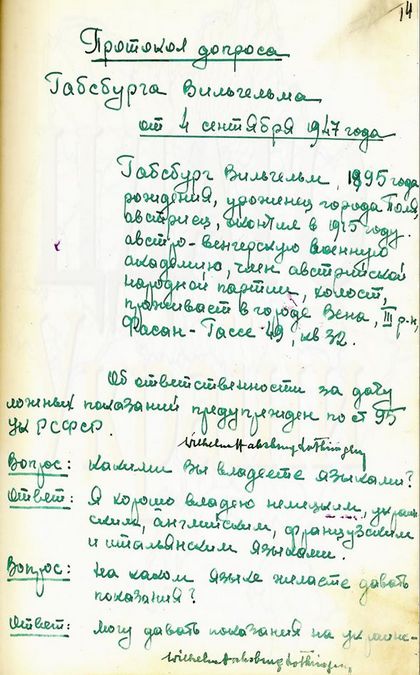 14
Протокол допроса
Габсбурга Вильгельма
от 4 сентября 1947 года
Габсбург Вильгельм, 1895 года
рождения, уроженец города Поля,
австриец, окончил в 1915 году
австро-венгерскую военную
академию, член австрийской
народной партии, холост,
проживает в городе Вена, III р-н,
Фасан-Гассе 49, кв 32.
Об ответственности за дачу
ложных показаний предупрежден по ст 95
УК РСФСР.
Wilhelm Habsburg Lothringen
Вопрос: Какими Вы владеете языками?
Ответ: Я хорошо владею немецким, украин-
ским, английским, французским
и итальянским языками.
Вопрос: На каком языке желаете давать
показания?
Ответ: Могу давать показания на украинс-
Wilhelm Habsburg Lothringen